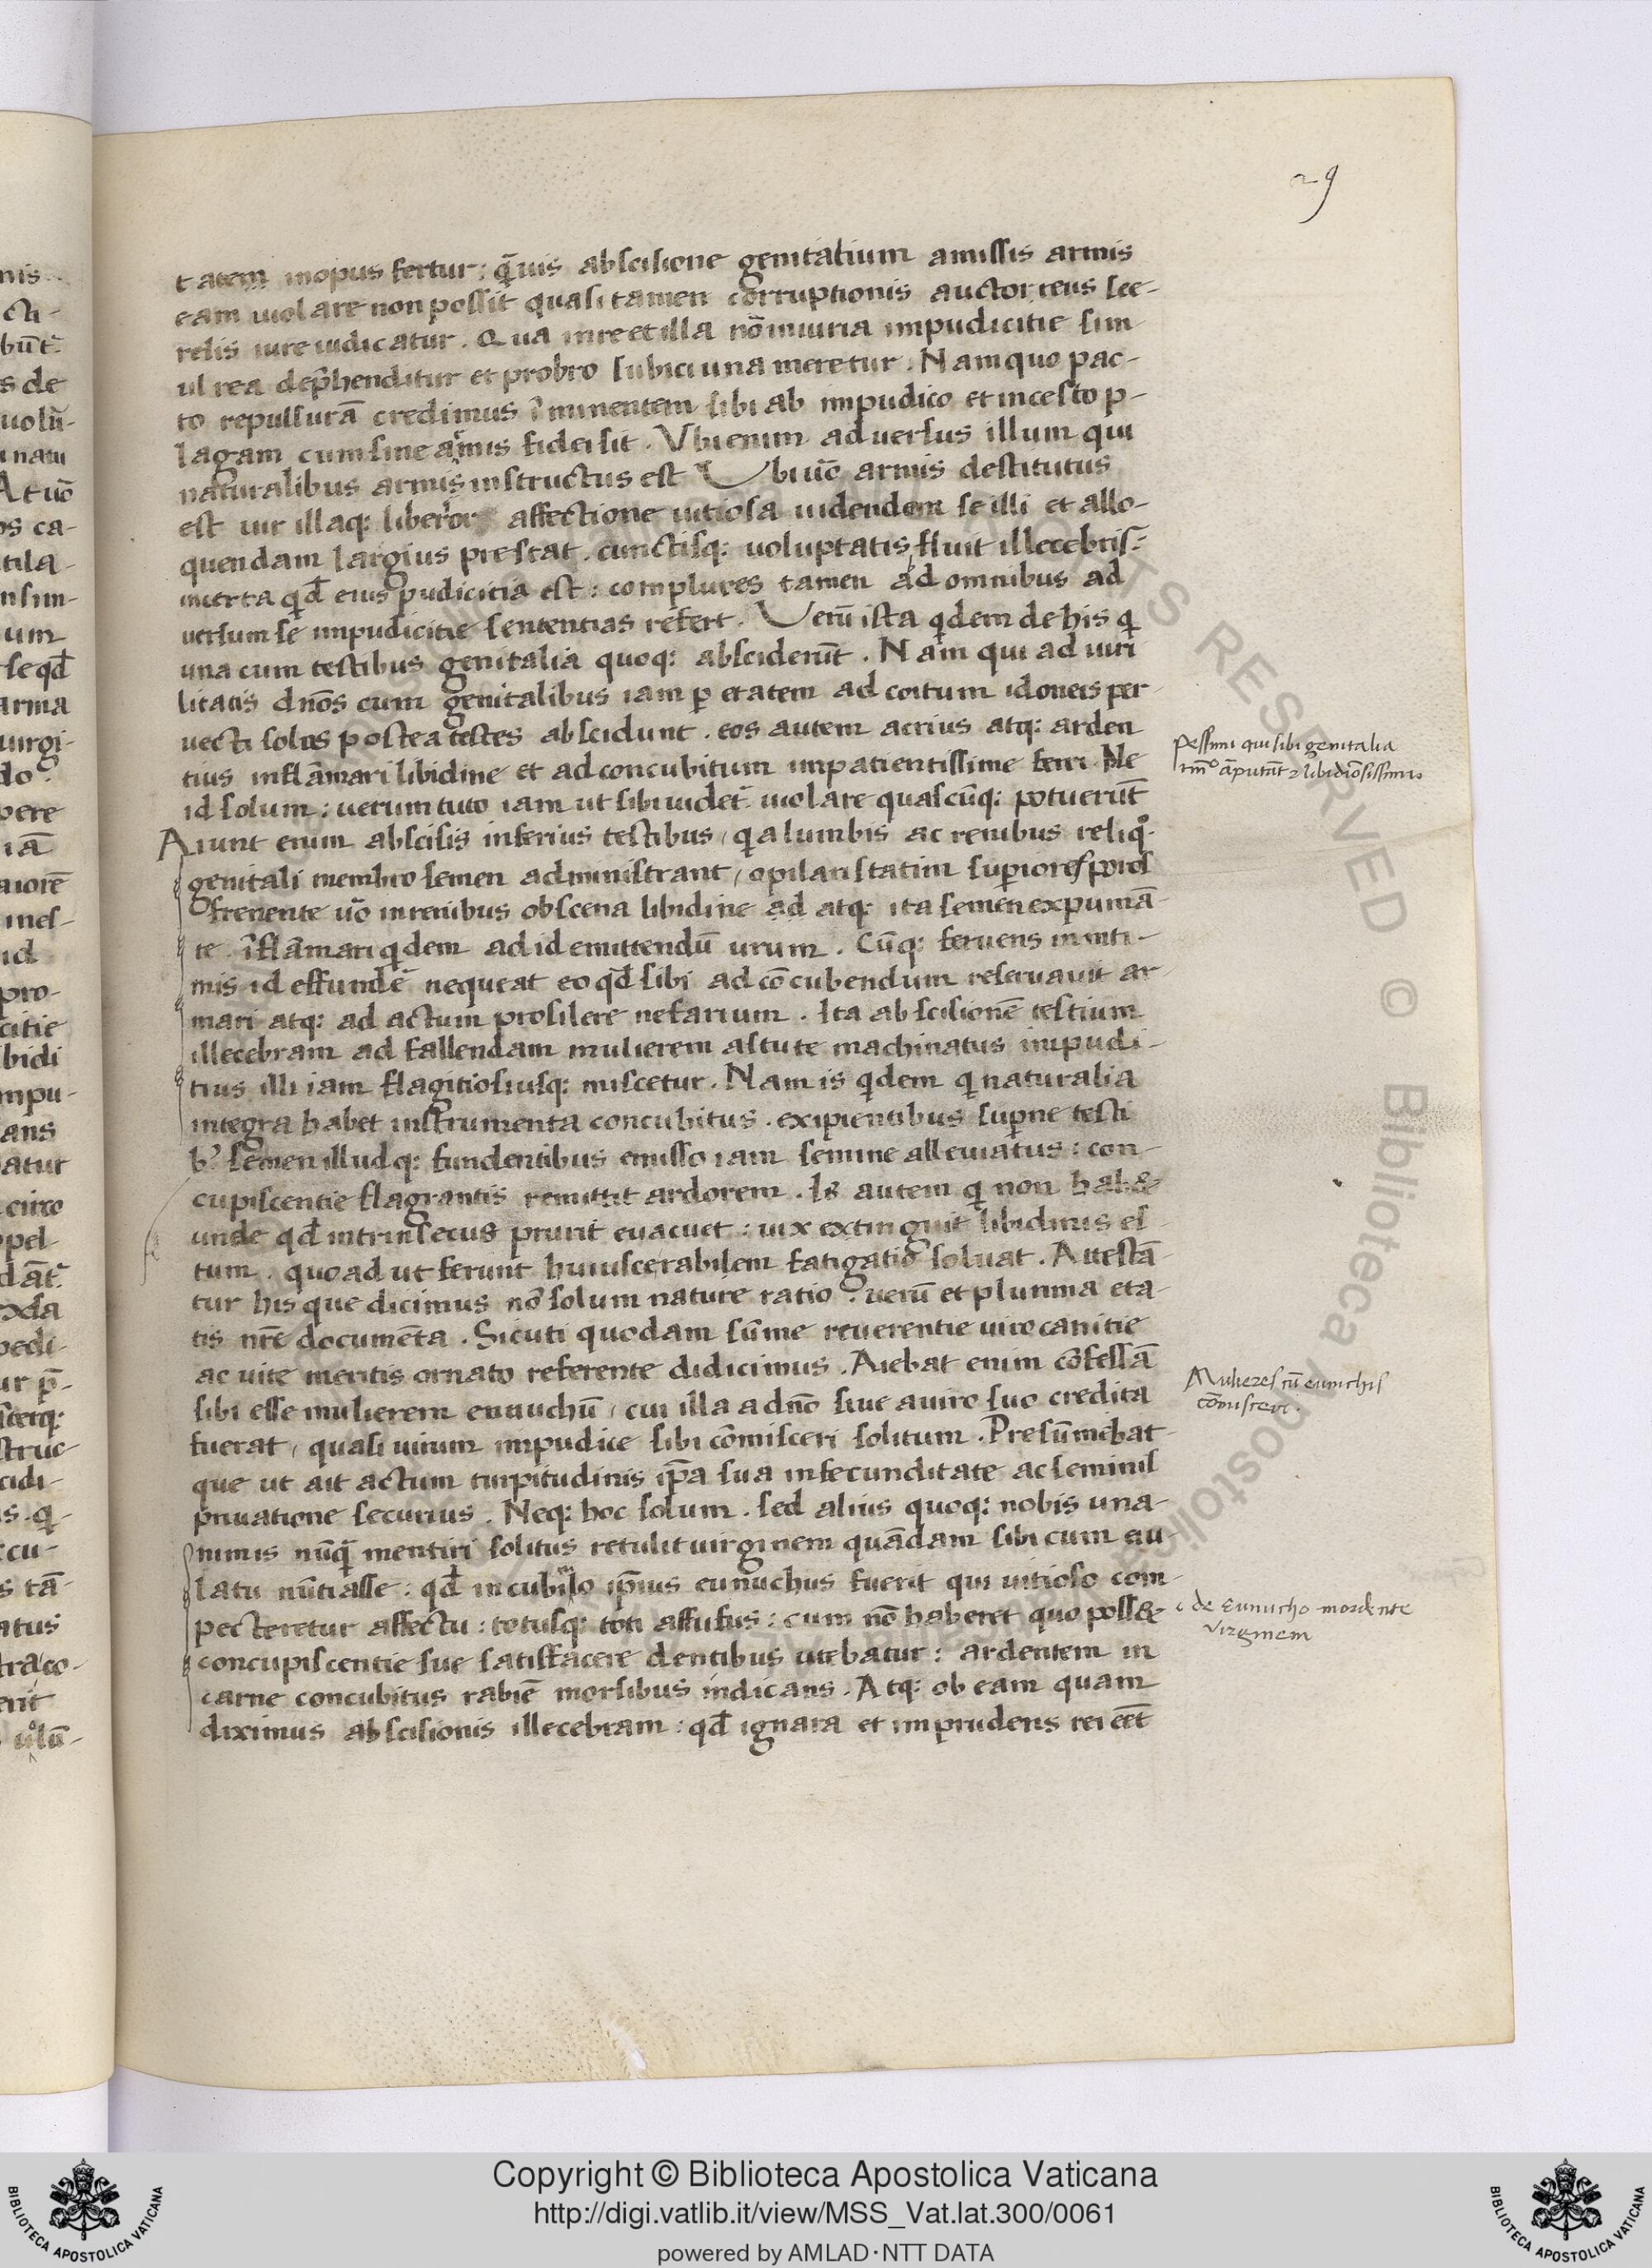 29
tatem inopus fertur: q̄uis abscisione genitalium amissis armis
eam uiolare non possit quasi tamen corruptionis auctor, reus sce-
relis iure iudicatur. Qua in re et illa nō iniuria impudicitie sim
ul rea dep̄henditur et probro subici una meretur. Nam quo pac-
to repulsurā credimus īminentem sibi ab impudico et incesto p-
lagam cum sine armis fidei sit. Vbi enim aduersus illum qui
naturalibus armis instructus est Vbi uō armis destitutus
est uir illaq: liberior affectione uitiosa uidendam se illi et allo-
quendam largius prestat. cunctisq: uoluptatis fluit illecebris:
incerta qd̄ eius pudicitia est: complures tamen ad omnibus ad
uersum se impudicitie sententias refert. Verū ista qdem de his q
una cum testibus genitalia quoq: absciderūt. Nam qui ad uiri
litatis ānos cum genitalibus iam p etatem ad coitum idoneis per
uecti solos postea testes abscidunt. eos autem acrius atq: arden
tius inflāmari libidine et ad concubitum impatientissime ferri. Ne
id solum: uerum tuto iam ut sibi uidet uiolare quascūq: potuerūt
Aiunt enim abscisis inferius testibus, q a lumbis ac renibus reliqo
genitali membro semen administrant, opilari statim supiores poros
frenente uō in renibus obscena libidine ad atq: ita semen expumā-
te. īflāmari qdem ad id emittendū uirum. Cūq: feruens in inti-
mis id effunde nequeat eo qd̄ sibi ad cōcubendum reseruauit ar
mari atq: ad actum prosilere nefarium. Ita abscisionē testium
illecebram ad fallendam mulierem astute machinatus impudi-
tius illi iam flagitiosiusq: miscetur. Nam is qdem q naturalia
integra habet instrumenta concubitus. exipientibus supne testi
b; semen illudq: fundentibus emisso iam semine alleuiatus: con-
cupiscentie flagrantis remittit ardorem. Is autem q non hab&
unde qd̄ intrinsecus prurit euacuet: uix extinguit libidinis es
tum. quoad ut ferunt huiuscerabilem fatigatio soluat. Attestā-
tur his que dicimus nō solum nature ratio: uerū et plurima eta-
tis nr̄e documēta. Sicuti quodam sūme reuerentie uiro canitie
ac uite meritis ornato referente didicimus. Aiebat enim cōfessā
sibi esse mulierem eunuchū, cui illa a dn̄o siue a uiro suo credita
fuerat, quasi uirum impudice sibi cōmisceri solitum. Presūmebat
que ut ait actum turpitudinis ip̄a sua infecunditate ac seminis
priuatione securius. Neq: hoc solum. sed alius quoq: nobis una-
nimis nūq mentiri solitus retulit uirginem quādam sibi cum eu-
latu nūtiasse: qd̄ in cubiculo ip̄ius eunuchus fuerit qui uitioso com-
pecteretur affectu: totusq: toti affusus: cum nō haberet quo poss&
concupiscentie sue satisfacere dentibus utebatur: ardentem in
carne concubitus rabiē morsibus indicans. Atq: ob eam quam
diximus abscisionis illecebram: qd̄ ignara et imprudens rei eēt
Pessimi qui sibi genitalia
Mulieres cū eunuchis
cōmisceri.
de Eunucho mordente
virginem
Copyright © Biblioteca Apostolica Vaticana
http://digi.vatlib.it/view/MSS_Vat.lat.300/0061
powered by AMLAD·NTT DATA
BIBLIOTECA APOSTOLICA VATICANA
BIBLIOTECA APOSTOLICA VATICANA